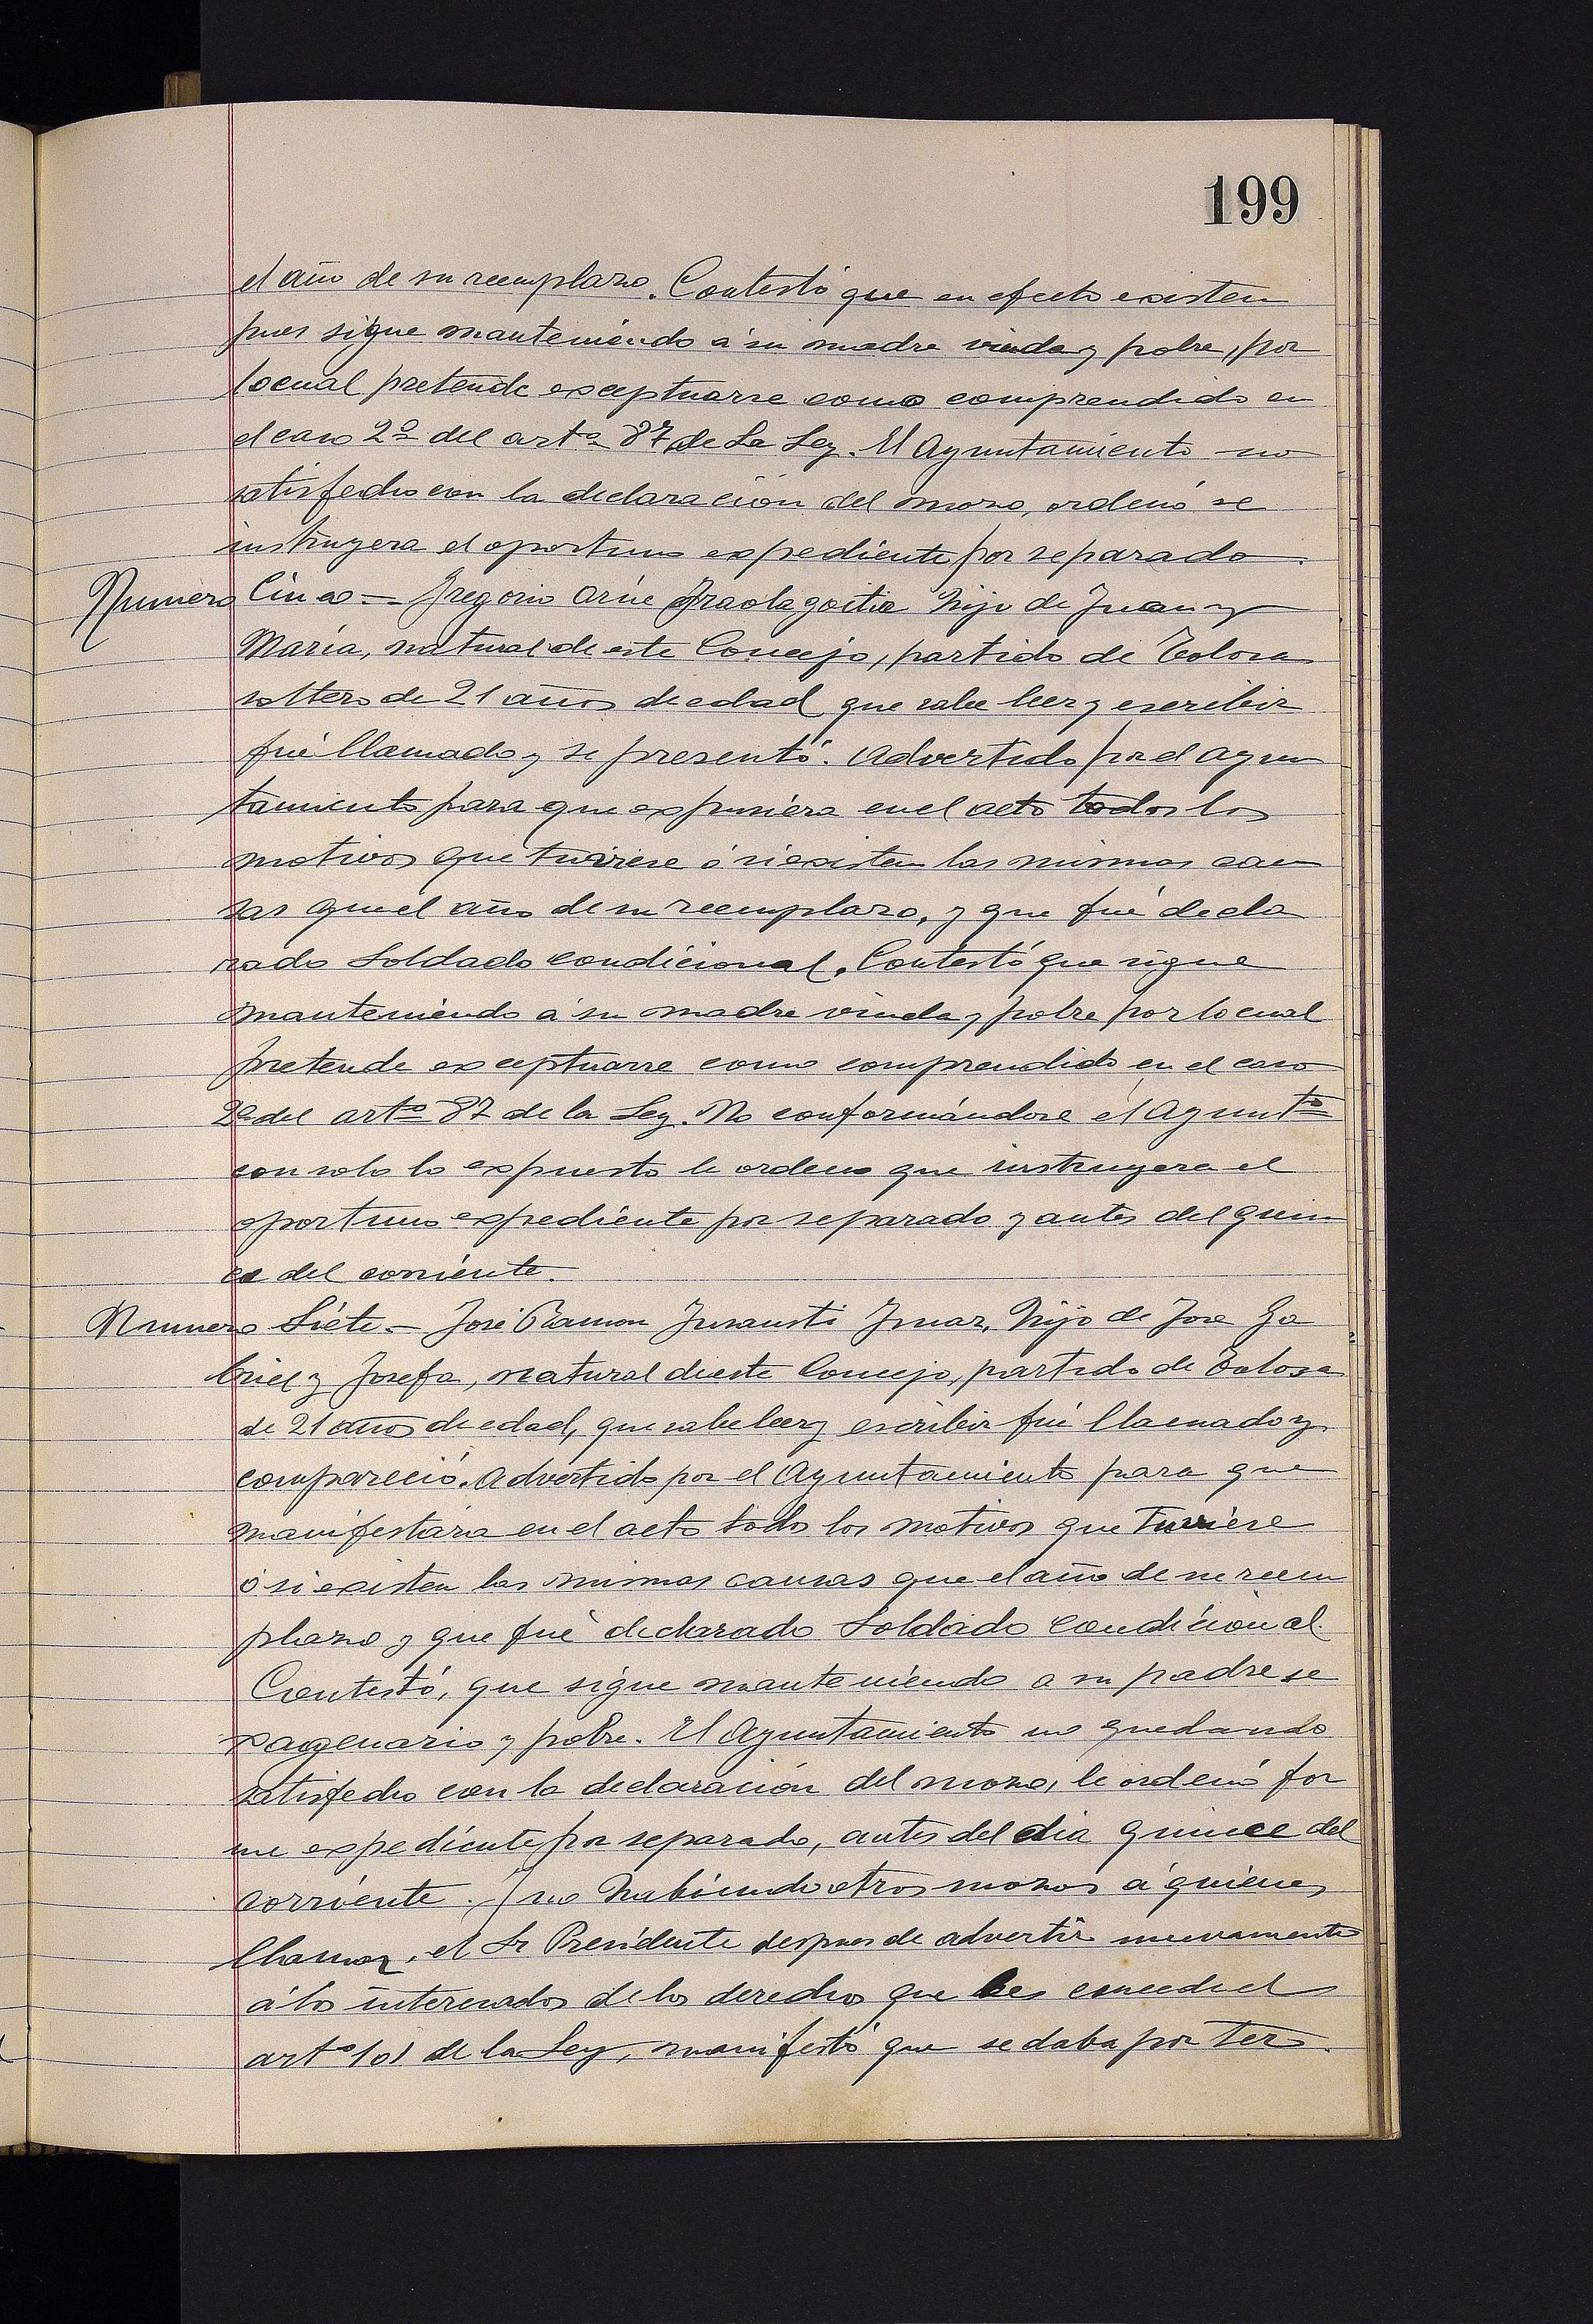 199
el año de su reemplazo. Contestó que en efecto existen
pues sigue manteniendo á su madre viuda y pobre, por
lo cual pretende exceptuarse como comprendido en
el caso 2º del artº 87 de La Ley. El Ayuntamiento no
satisfecho con la declaración del mozo, ordenó se
instruyera el oportuno expediente por separado.
Numero Cinco = Gregorio Arúe Iraolagoitia hijo de Juan y
María, natural de este Concejo, partido de Tolosa
soltero de 21 años de edad que sabe leer y escribir
fué llamado y se presentó. Advertido por el Ayun
tamiento para que expusiera en el acto todos los
motivos que tuviese ó si existen las mismas cau
sas que el año de su reemplazo, y que fué decla
rado Soldado condicional. Contestó que sigue
manteniendo á su madre viuda y pobre por lo cual
pretende exceptuarse como comprendido en el caso
2º del artº 87 de la Ley. No conformándose el Ayuntº
con solo lo expuesto le ordeno que instruyera el
oportuno expediente por separado y antes del quin
ce del corriente.
Numero Siete = José Ramon Jurausti Imaz, hijo de Jose Ga
briel y Josefa, natural de este Concejo, partido de Tolosa
de 21 años de edad, que sabe leer y escribir fué llamado y
compareció. Advertido por el Ayuntamiento para que
manifestara en el acto todos los motivos que tuviese
ó si existen las mismas causas que el año de su reem
plazo y que fué declarado Soldado Condicional.
Contestó, que sigue manteniendo a su padre se
xagenario y pobre. El Ayuntamiento no quedando
satisfecho con la declaración del mozo, le ordenó for
me expediente por separado, antes del dia quince del
corriente. Y no habiendo otros mozos á quienes
llamar, el Sr Presidente despues de advertir nuevamente
á los interesados de los derechos que les concede el
artº 101 de la Ley, manifestó que se daba por ter